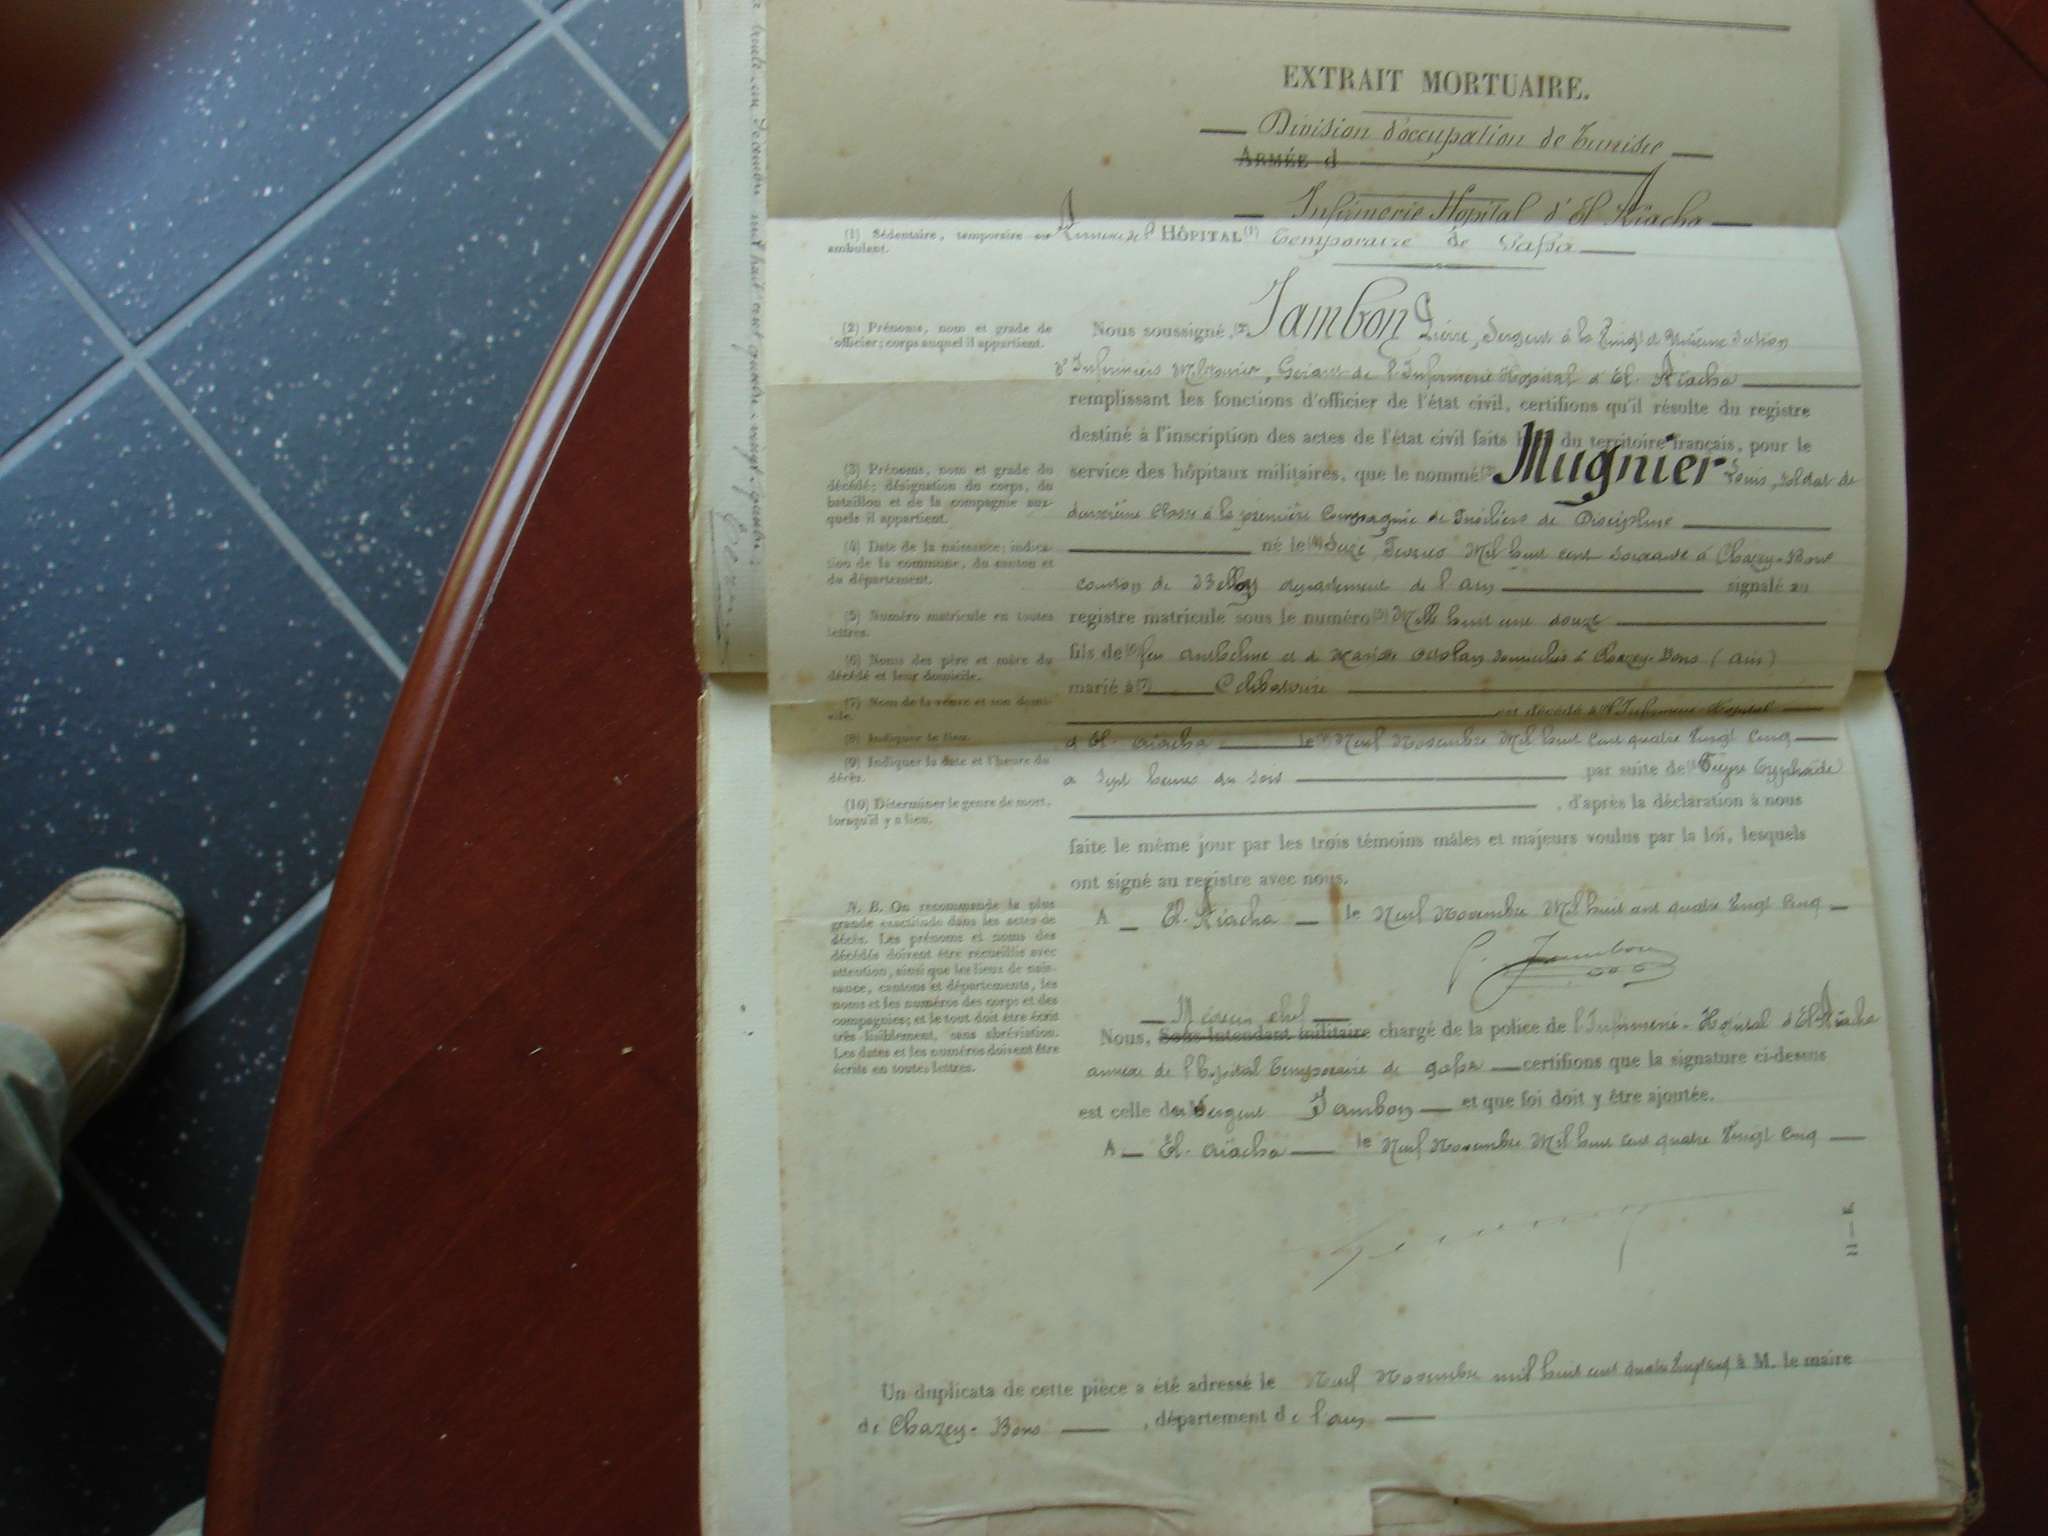 EXTRAIT MORTUAIRE.
Division d'occupation de Tunisie
ARMÉE d
Infirmerie Hôpital d'El Aïacha
(1) Sédentaire, temporaire ou ambulant.
Annexe de l' HÔPITAL (1) temporaire de Gafsa
(2) Prénoms, nom et grade de l'officier; corps auquel il appartient.
Nous soussigné, (2) Jambon Pierre, Sergent à la Vingt et Unième Section
d'Infirmiers Militaires, Gérant de l'Infirmerie Hôpital d'El. Aïacha
remplissant les fonctions d'officier de l'état civil, certifions qu'il résulte du registre
destiné à l'inscription des actes de l'état civil faits hors du territoire français, pour le
(3) Prénoms, nom et grade du décédé; désignation du corps, du bataillon et de la compagnie auxquels il appartient.
service des hôpitaux militaires, que le nommé (3) Mugnier Louis, soldat de
deuxième classe à la première Compagnie de Fusiliers de Discipline
(4) Date de la naissance; indication de la commune, du canton et du département.
né le (4) Février Mil huit cent soixante à Chazey-Bons
canton de Belley département de l'ain signalé au
(5) Numéro matricule en toutes lettres.
registre matricule sous le numéro (5) Mille huit cent douze
(6) Noms des père et mère du décédé et leur domicile.
fils de (6) feu Anthelme et de domiciliés à Chazey-Bons (ain)
marié à (7) Célibataire
(7) Nom de la veuve et son domicile.
est décédé à (8) l'Infirmerie-Hôpital
(8) Indiquer le lieu.
d'El. Aïacha le (9) Neuf Novembre Mil huit cent quatre Vingt Cinq
(9) Indiquer la date et l'heure du décès.
a Sept heures du soir par suite de (10) Fièvre Typhoïde
(10) Déterminer le genre de mort, lorsqu'il y a lieu.
, d'après la déclaration à nous
faite le même jour par les trois témoins mâles et majeurs voulus par la loi, lesquels
ont signé au registre avec nous.
N. B. On recommande la plus
grande exactitude dans les actes de
décès. Les prénoms et noms des
décédés doivent être recueillis avec
attention, ainsi que les lieux de nais-
sance, cantons et départements, les
noms et les numéros des corps et des
compagnies; et le tout doit être écrit
très lisiblement, sans abréviation.
Les dates et les numéros doivent être
écrits en toutes lettres.
A El. Aïacha le Neuf Novembre Mil huit cent quatre Vingt Cinq
P. Jambon
Médecin chef
Nous, Sous-Intendant militaire chargé de la police de l'Infirmerie-Hôpital d'El-Aïacha
annexe de l'hôpital Temporaire de gafsa certifions que la signature ci-dessus
est celle du Sergent Jambon et que foi doit y être ajoutée.
A El. Aïacha le Neuf Novembre Mil huit cent quatre Vingt Cinq
Un duplicata de cette pièce a été adressé le Neuf Novembre mil huit cent quatre Vingt cinq à M. le maire
de Chazey-Bons , département de l'ain